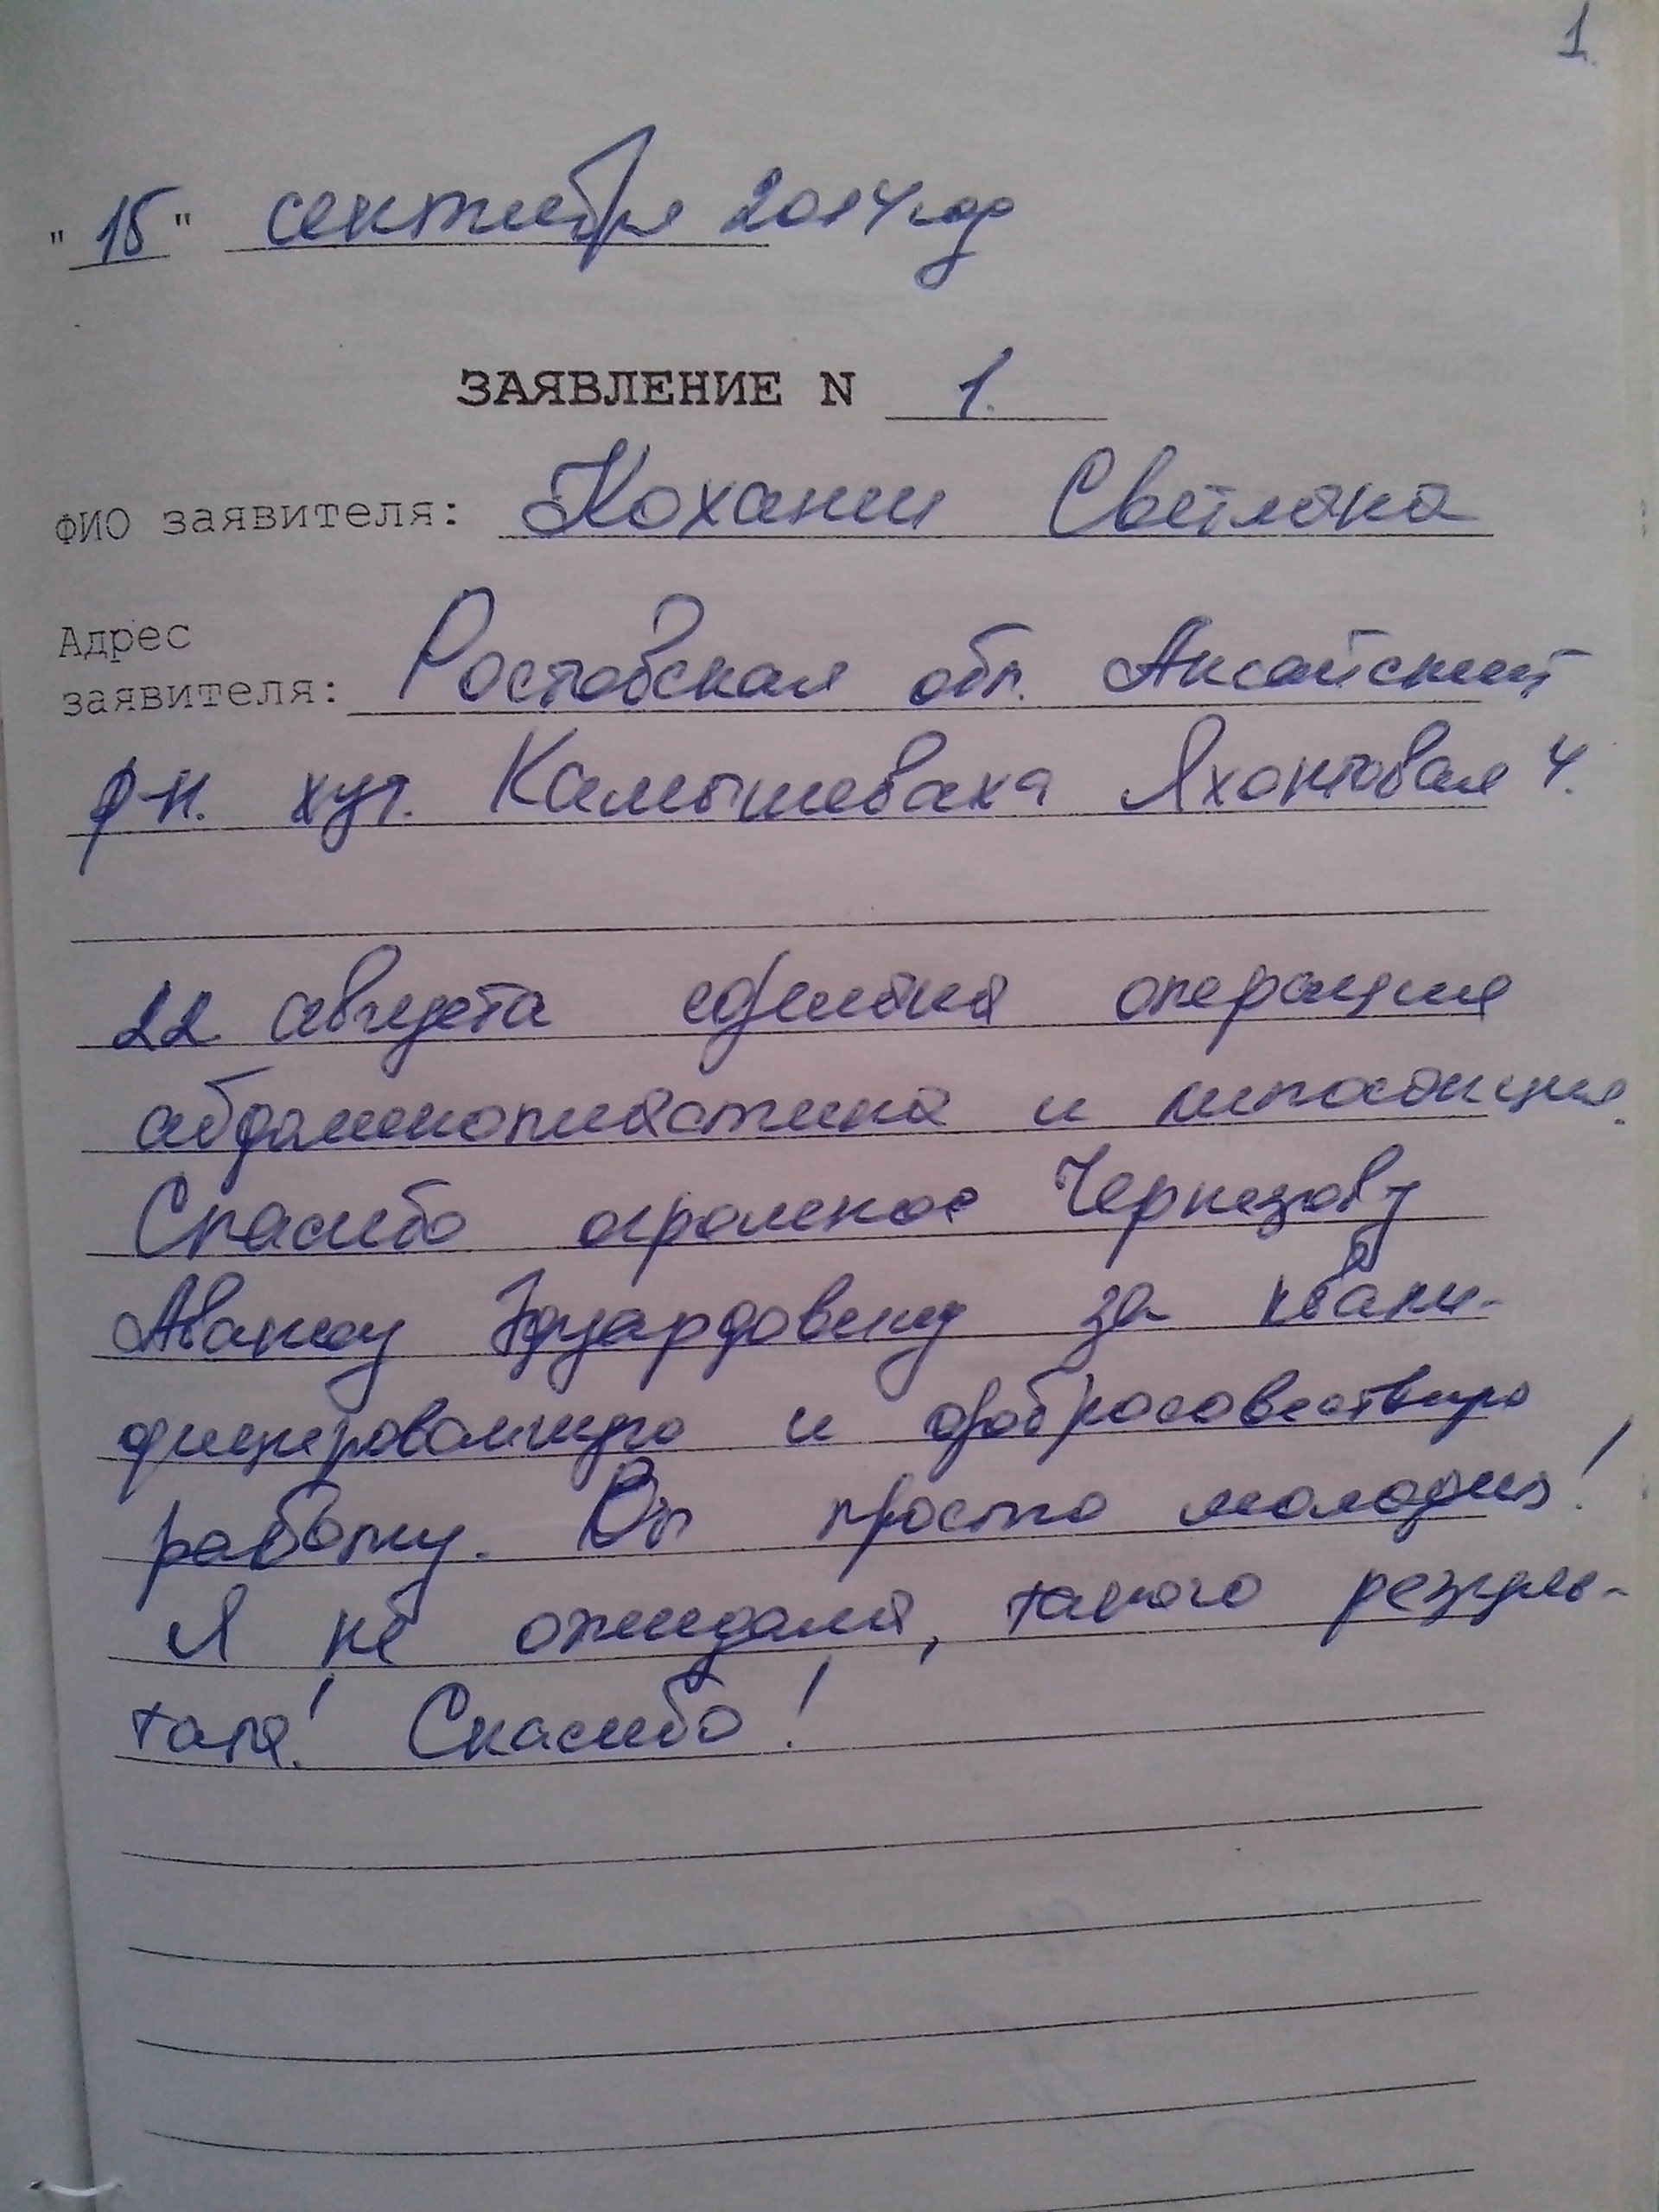 1.
"15" сентября 2014 год
ЗАЯВЛЕНИЕ N 1.
ФИО заявителя: Кохании Светлана
Адрес
заявителя: Ростовская обл. Аксайский
р-н. хут. Камышеваха Яхонтовая 4.
22 августа сделана операция
абдоменопластика и липосакция.
Спасибо огромное
Эдуардовичу за квали-
фицированную и добросовествную
работу. Вы просто молодец!
Я не ожидала, такого резуль-
тата! Спасибо!